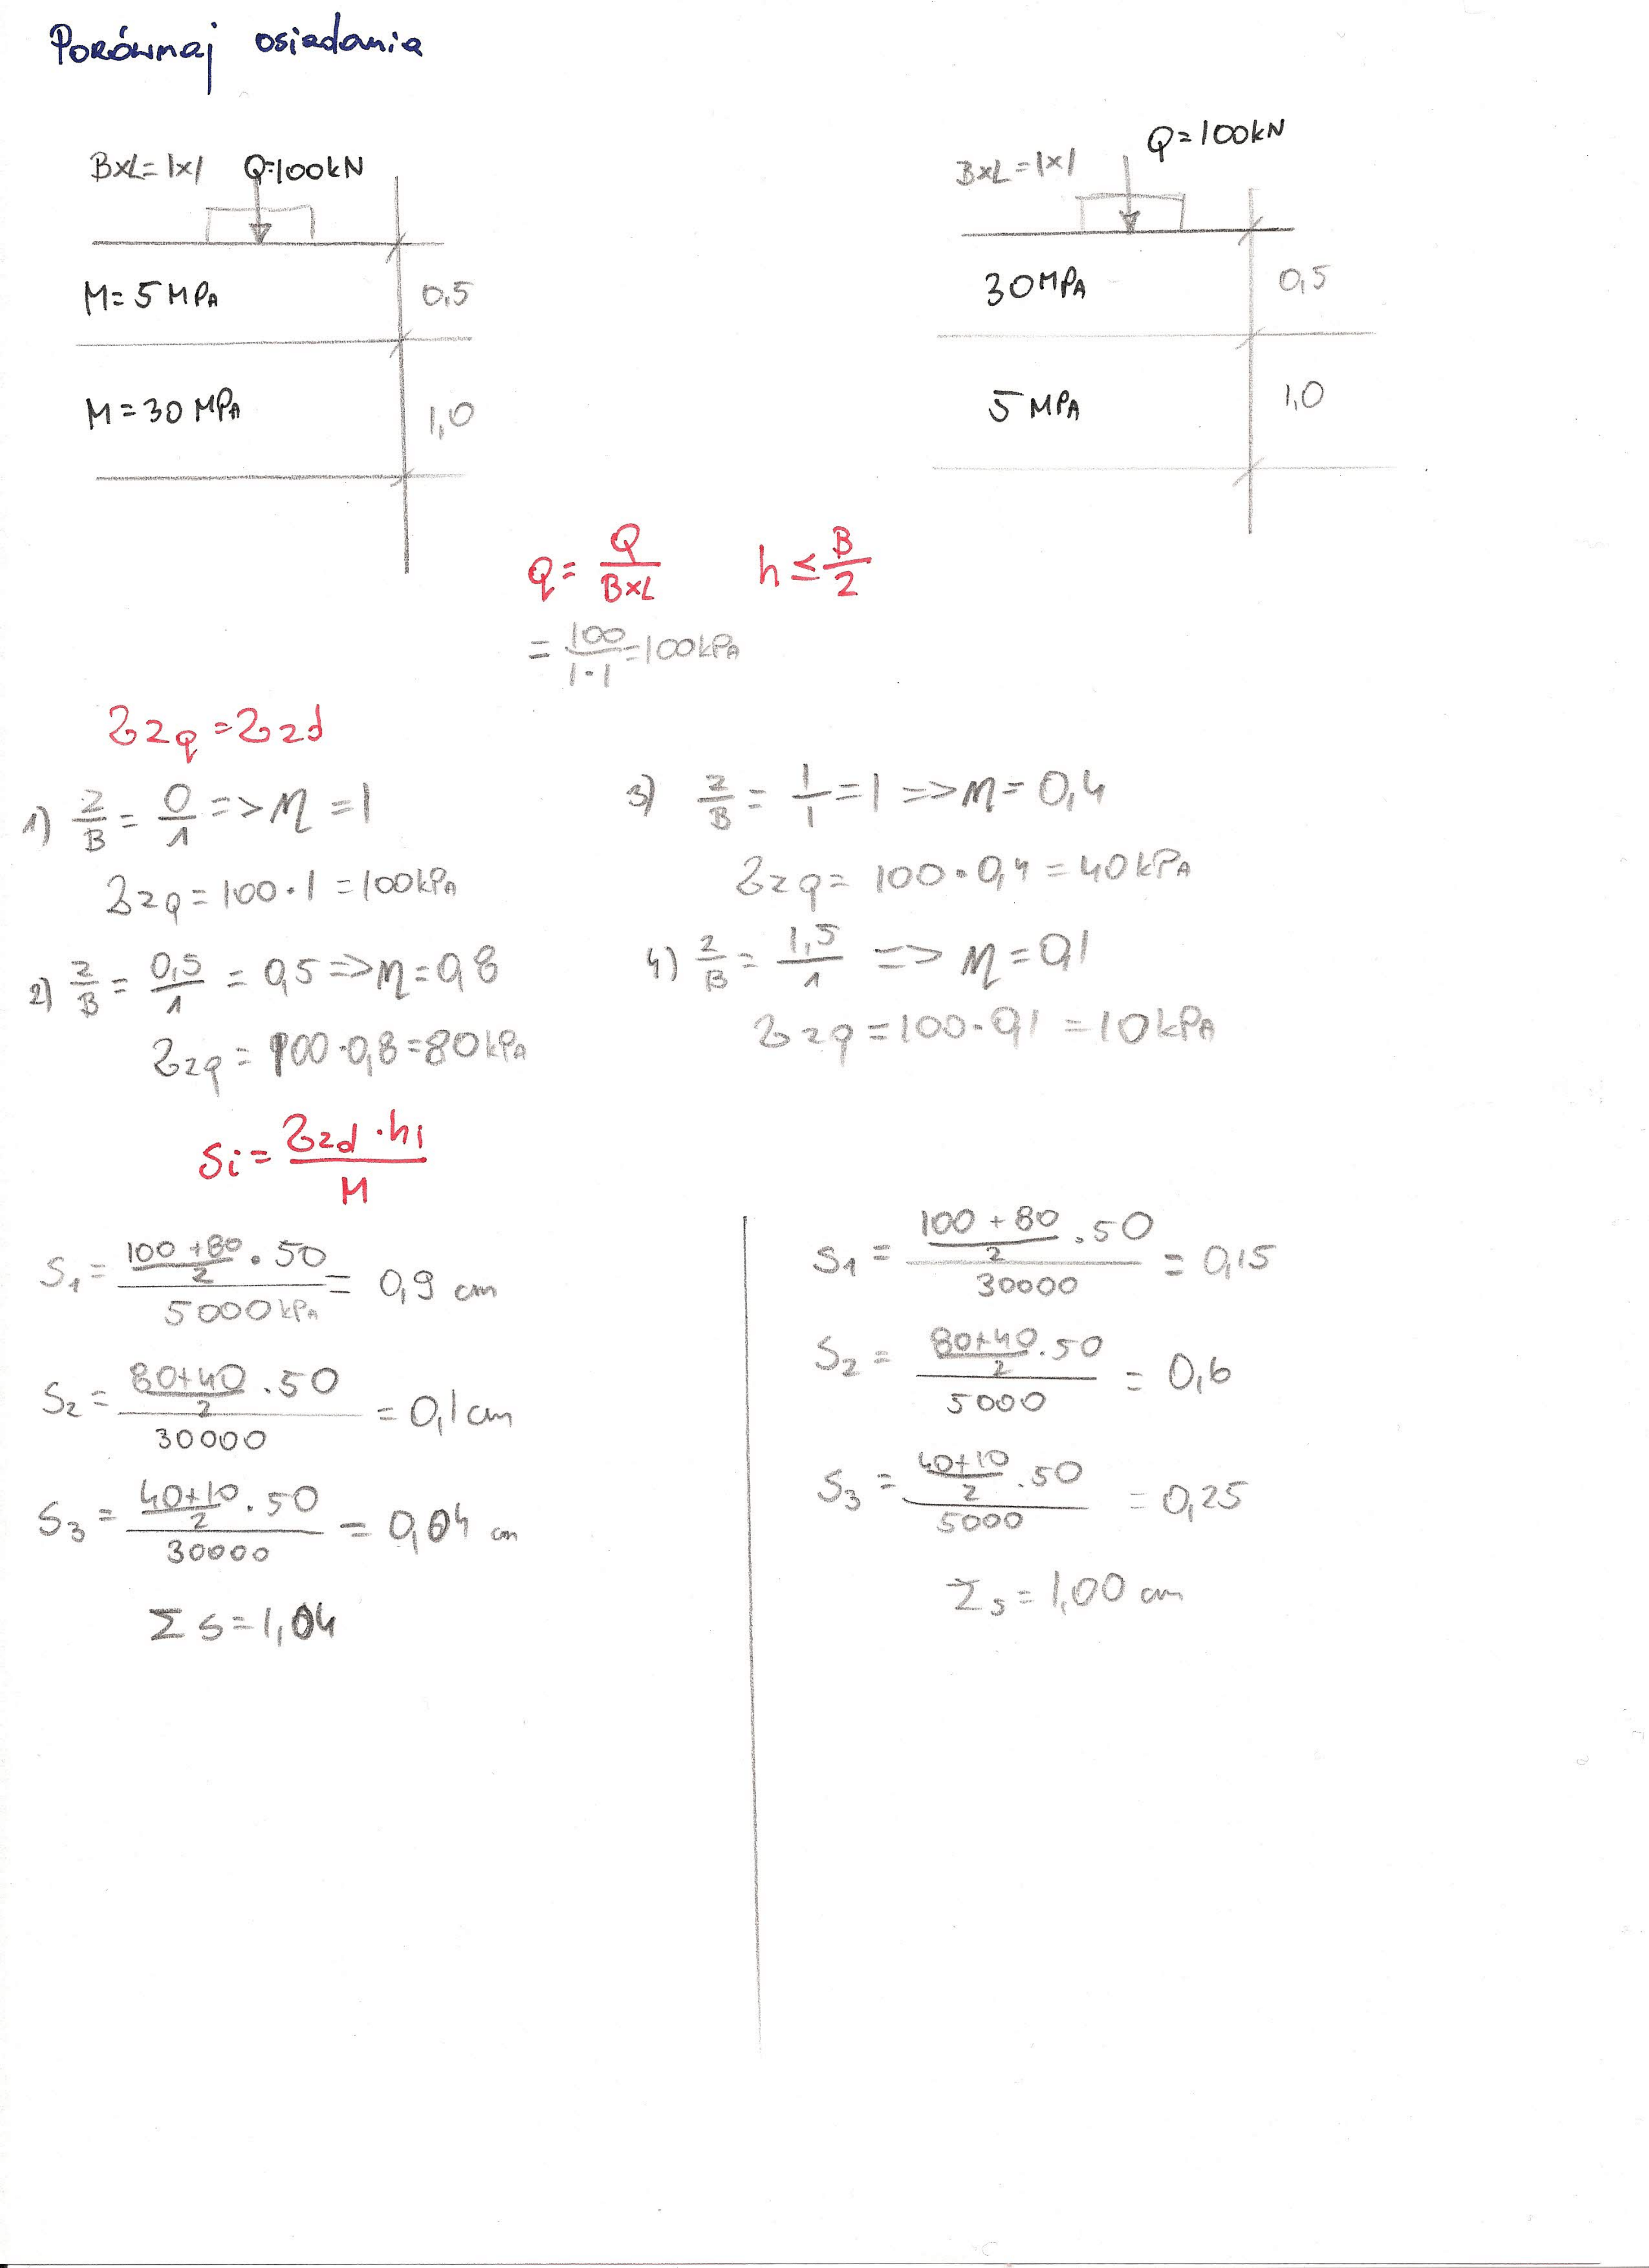 Porównaj osiadania
BxL=1x1 Q=100kN
M=5MPa 0,5
M=30MPa 1,0
BxL=1x1 Q=100kN
30MPa 0,5
5MPa 1,0
q=Q/BxL h≤B/2
=100/1·1=100kPa
σzq=σzd
1) z/B=0/1=>η=1
σzq=100·1=100kPa
2) z/B=0,5/1=0,5=>η=0,8
σzq=100·0,8=80kPa
3) z/B=1/1=1=>η=0,4
σzq=100·0,4=40kPa
4) z/B=1,5/1=>η=0,1
σzq=100·0,1=10kPa
Si=σzd·hi/M
S1=(100+80)/2·50/5000kPa=0,9 cm
S2=(80+40)/2·50/30000=0,1cm
S3=(40+10)/2·50/30000=0,04 cm
ΣS=1,04
S1=(100+80)/2·50/30000=0,15
S2=(80+40)/2·50/5000=0,6
S3=(40+10)/2·50/5000=0,25
Σs=1,00 cm